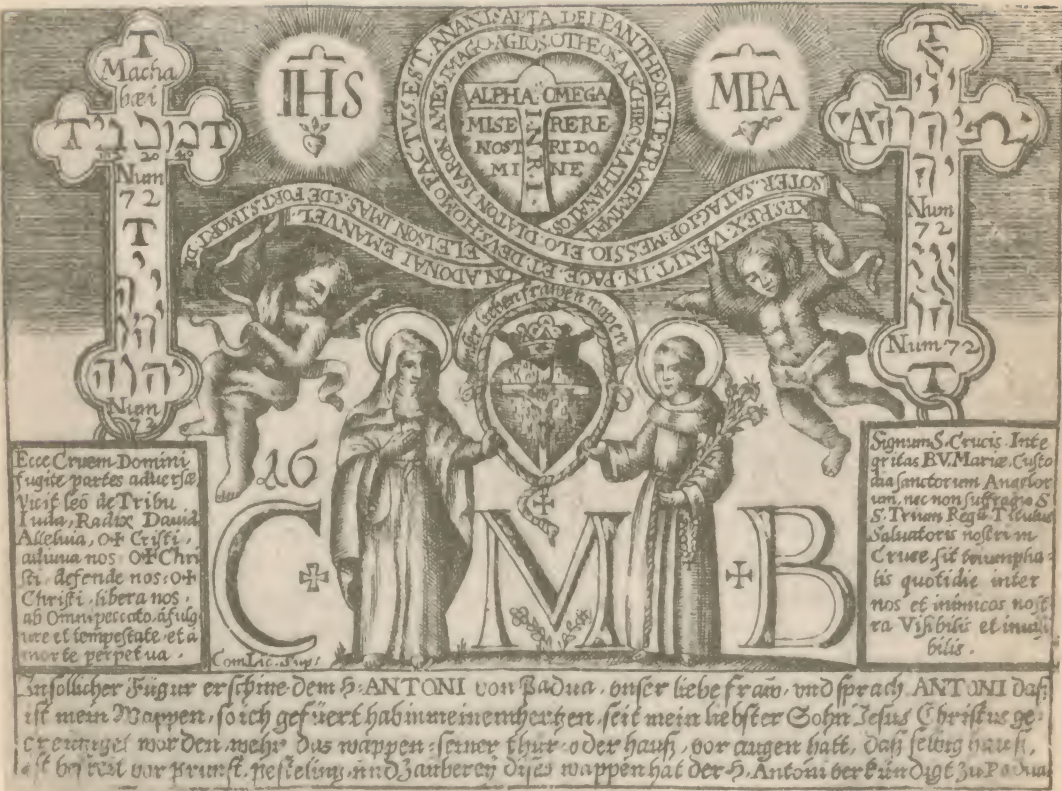 T
Macha
bæi
T
T
20
Num
72
T
יהוה
Num
72
IHS
MRA
T
Num
72
Num 72
T
FACTVS EST. ANANISAPTA DEI PANTHEON TETRAGRAMA
AGIOS OTHEOS
ALPHA OMEGA
MISE RERE
NOST RI DO
MI NE
I.N.R.I.
ADONAI EMANVEL
REX VENIT IN PACE ET DEVS HOMO
SOTER
liben frawen wapen
16
C M B
Ecce Crucem Domini
fugite partes adversæ
Vicit leō de Tribu
Iuda, Radix Dauid
Alleluia, O✝ Cristi,
adiuua nos O✝ Chri
sti, defende nos: O✝
Christi, libera nos,
ab Omni peccato, á fulg
ure et tempestate et á
morte perpetua.
Signum S. Crucis. Inte
gritas B.V. Mariæ, Custo
dia sanctorum Angelor
um, nec non suffragia S
S. Trium Regū Titulus
Saluatoris nostri in
Cruce, sit triumpha
lis quotidie inter
nos et inimicos nost
ra Visibilis et inuisi
bilis.
Com. Lic. Sup:
In sollicher Figur erschine dem H: ANTONI von Padua, vnser liebe fraw, vnd sprach ANTONI daß
ist mein Wappen, so ich gefüert hab in meinem hertzen, seit mein liebster Sohn Jesus Christus ge
creuziget worden, wehr das wappen seiner thür oder hauß, vor augen hatt, daß selbig hauß,
ist vor Prunst, Pestelintz, vnd Zauberey dises wappen hat der H. Antoni verkündigt zu Padua